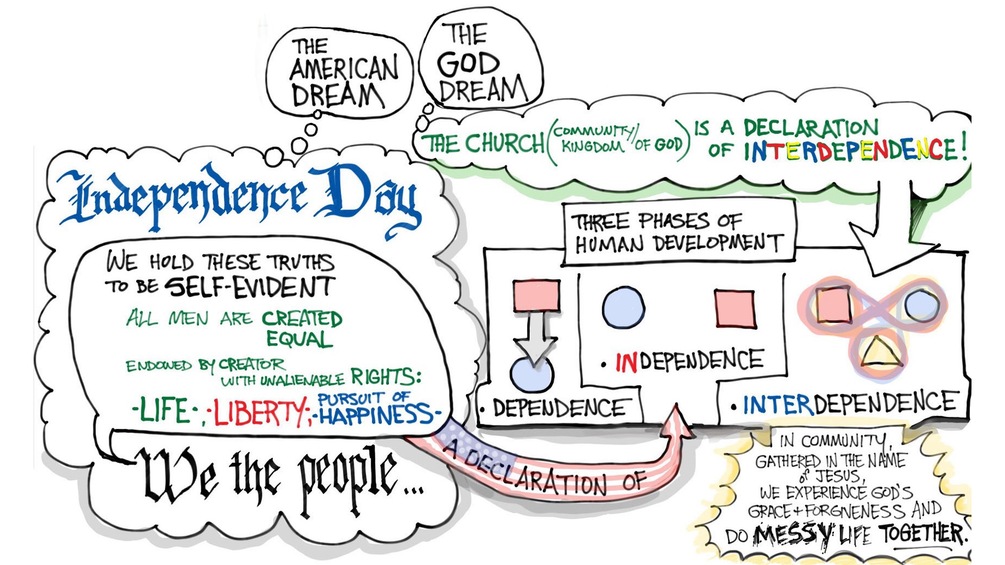 THE
AMERICAN
DREAM
THE
GOD
DREAM
THE CHURCH (COMMUNITY/KINGDOM OF GOD) IS A DECLARATION
OF INTERDEPENDENCE!
Independence Day
WE HOLD THESE TRUTHS
TO BE SELF-EVIDENT
ALL MEN ARE CREATED
EQUAL
ENDOWED BY CREATOR
WITH UNALIENABLE RIGHTS:
-LIFE-; -LIBERTY; -PURSUIT OF
HAPPINESS-
We the people...
A DECLARATION OF
THREE PHASES OF
HUMAN DEVELOPMENT
• DEPENDENCE
• INDEPENDENCE
• INTERDEPENDENCE
IN COMMUNITY,
GATHERED IN THE NAME
of JESUS,
WE EXPERIENCE GOD'S
GRACE + FORGNENESS AND
DO MESSY LIFE TOGETHER.